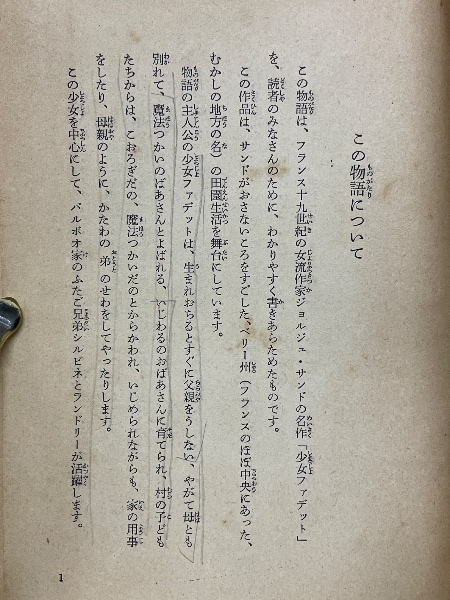 この物語について
この物語は、フランス十九世紀の女流作家ジョルジュ・サンドの名作「少女ファデット」
を、読者のみなさんのために、わかりやすく書きあらためたものです。
この作品は、サンドがおさないころをすごした、ベリー州（フランスのほぼ中央にあった、
むかしの地方の名）の田園生活を舞台にしています。
物語の主人公の少女ファデットは、生まれおちるとすぐに父親をうしない、やがて母とも
別れて、魔法つかいのばあさんとよばれる、いじわるのおばあさんに育てられ、村の子ども
たちからは、こおろぎだの、魔法つかいだのとからかわれ、いじめられながらも、家の用事
をしたり、母親のように、かたわの弟のせわをしてやったりします。
この少女を中心にして、バルボオ家のふたご兄弟シルビネとランドリーが活躍します。
1